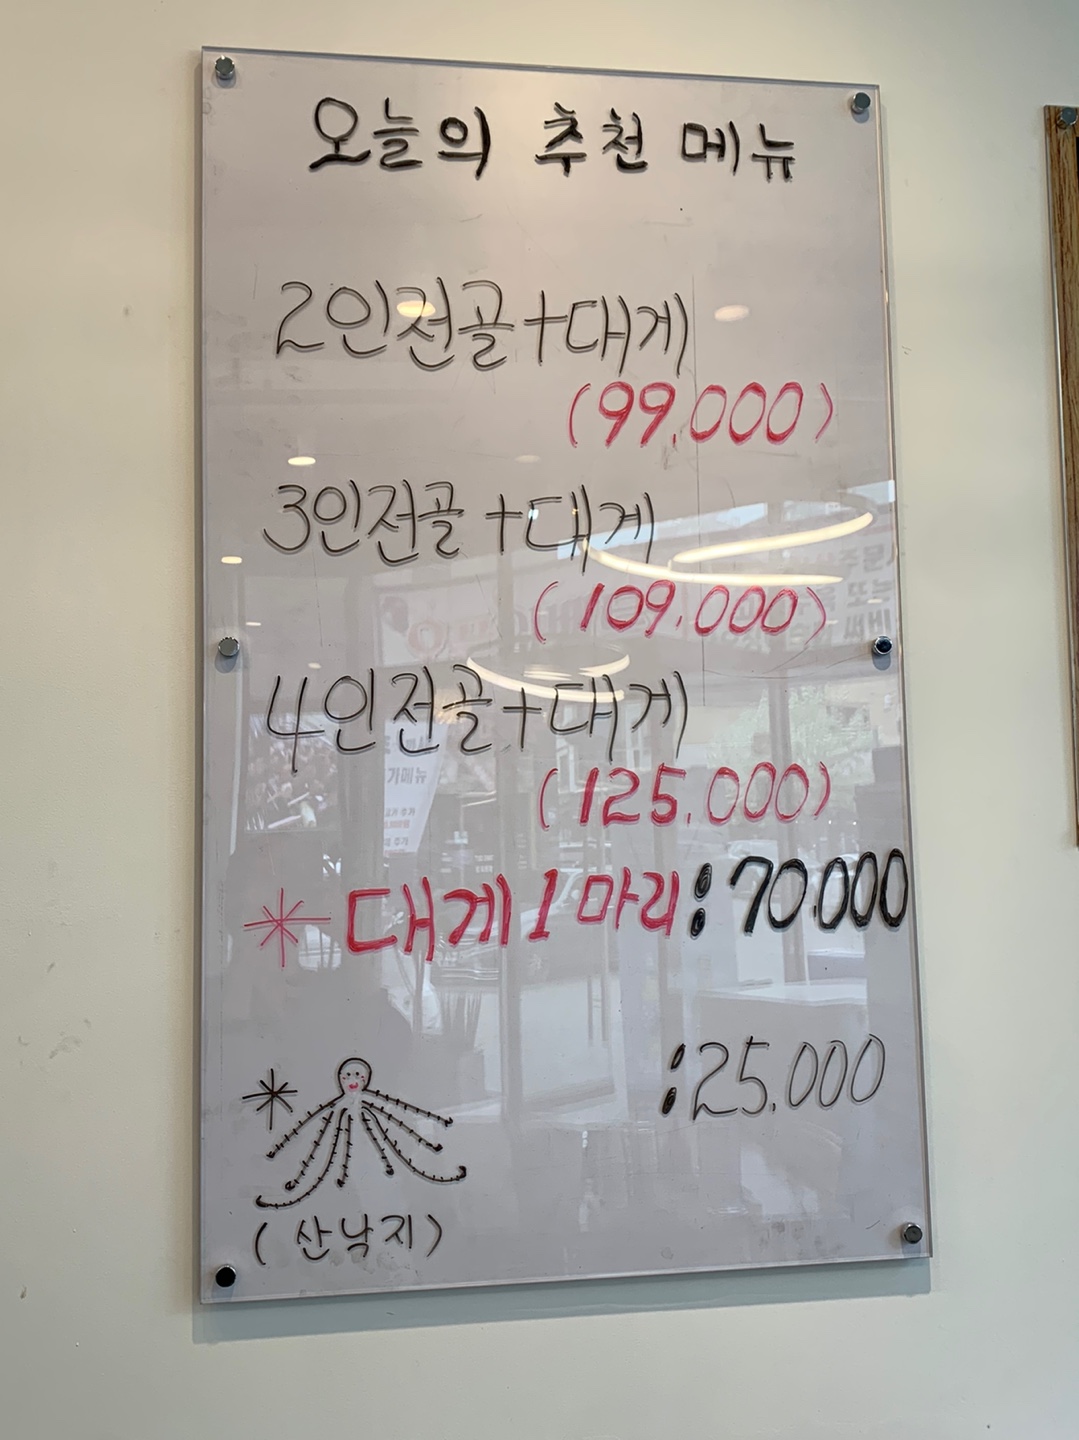 오늘의 추천 메뉴
2인전골+대게
(99.000)
3인전골+대게
(109.000)
4인전골+대게
(125.000)
* 대게 1마리 : 70.000
* : 25.000
(산낙지)